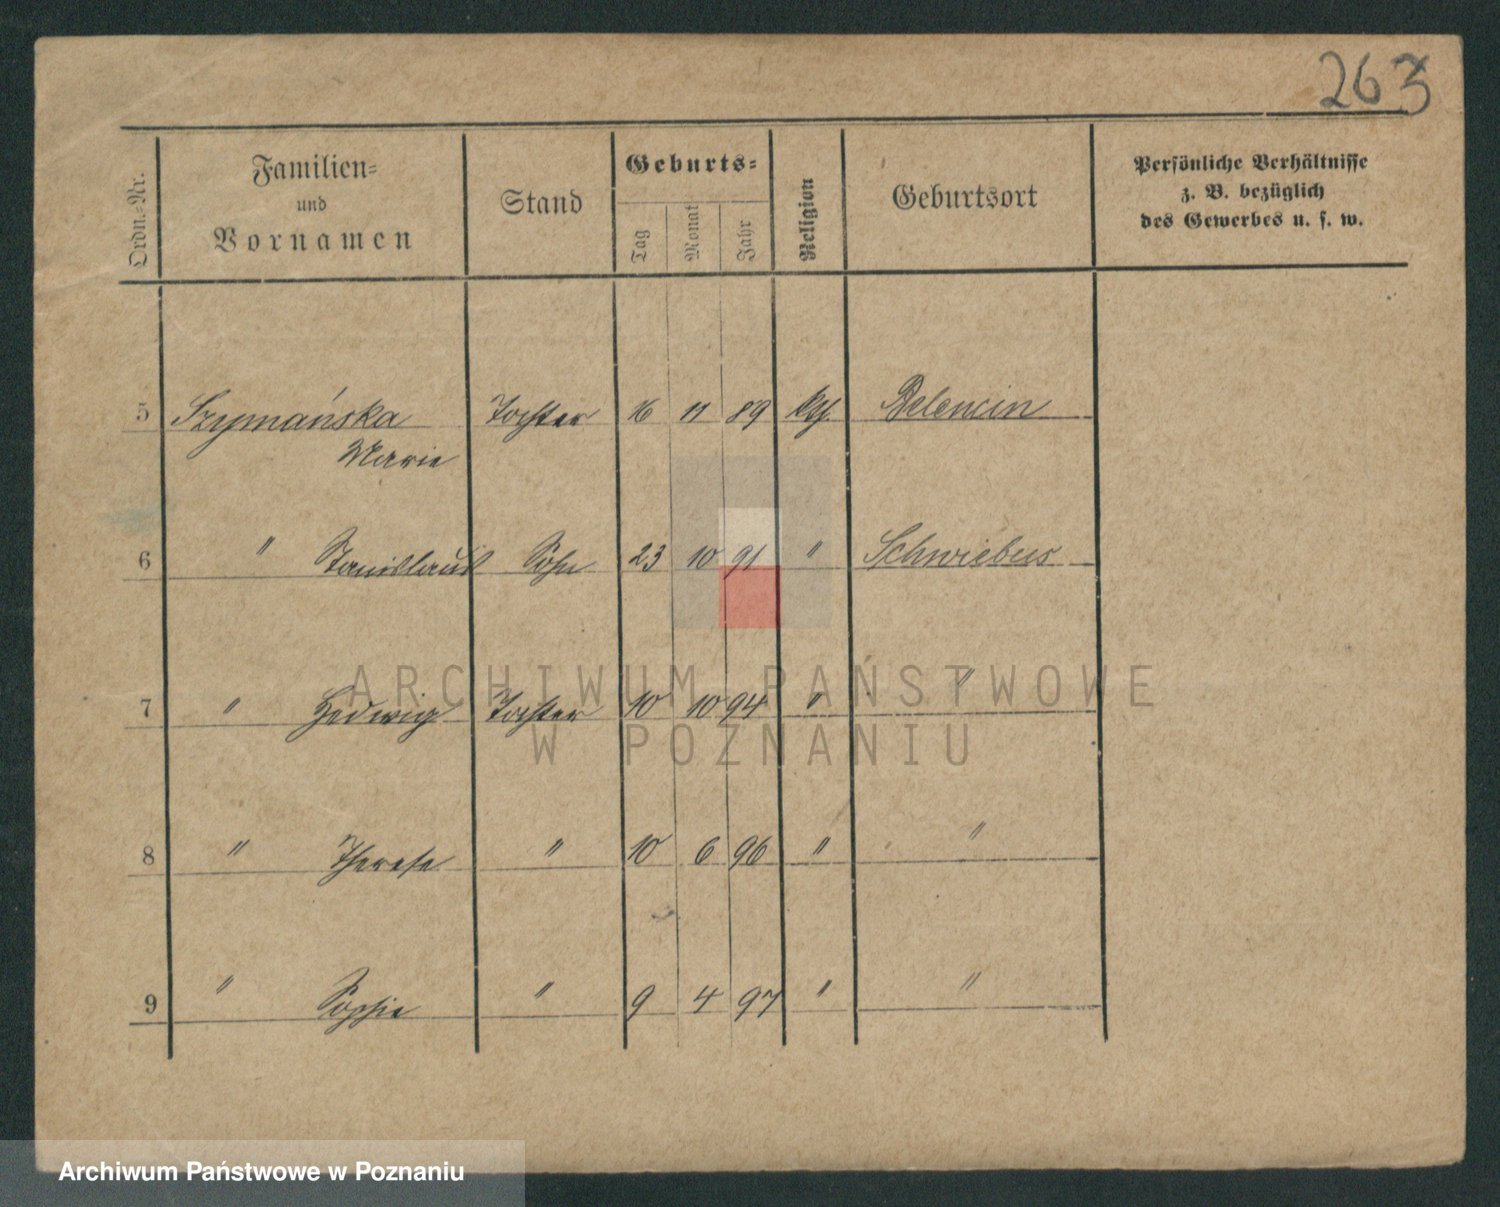 263
Ordn.-Nr. Familien- und Vornamen Stand Geburts- Tag Monat Jahr Religion Geburtsort Persönliche Verhältnisse z. B. bezüglich des Gewerbes u. s. w.
5 Szymańska Tochter 16 11 89 kth. Belencin
Marie
6 " Stanislaus Sohn 23 10 91 " Schwiebus
7 " Hedwig Tochter 10 10 94 " "
8 " Therese " 10 6 96 " "
9 " Sophie " 9 4 97 " "
ARCHIWUM PAŃSTWOWE
W POZNANIU
Archiwum Państwowe w Poznaniu